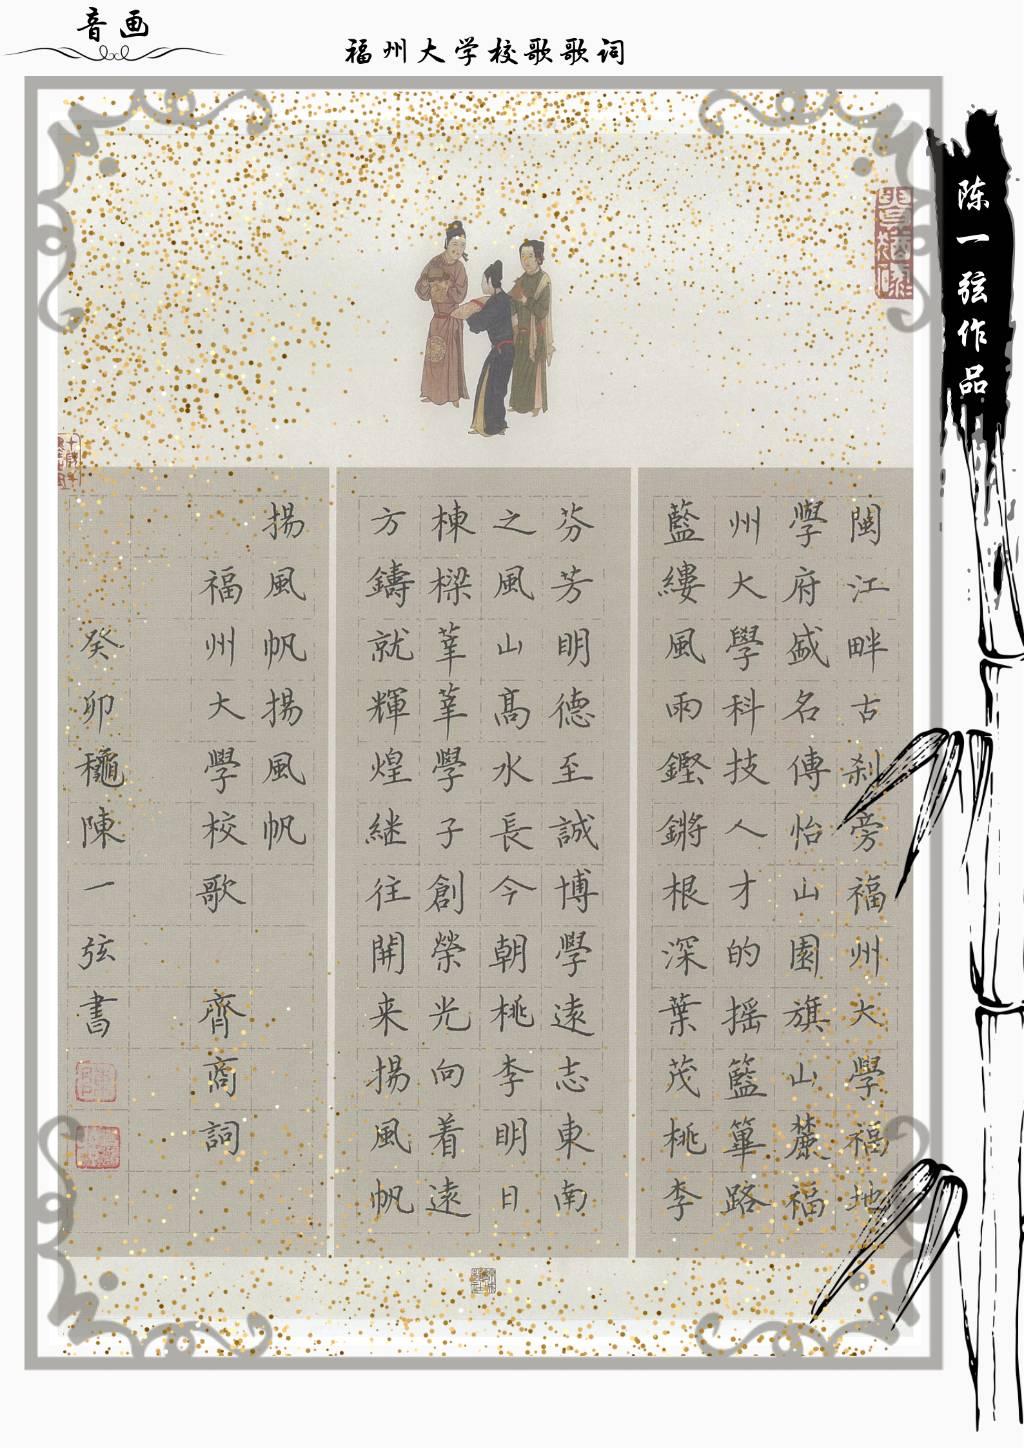 音画
福州大学校歌歌词
陈一弦作品
閩江畔古刹旁福州大學福地
學府盛名傳怡山園旗山麓福
州大學科技人才的摇籃篳路
藍縷風雨鏗鏘根深葉茂桃李
芬芳明德至誠博學遠志東南
之風山高水長今朝桃李明日
棟樑莘莘學子創榮光向着遠
方鑄就輝煌継往開来揚風帆
揚風帆揚風帆
福州大學校歌 齊商詞
癸卯龝陳一弦書